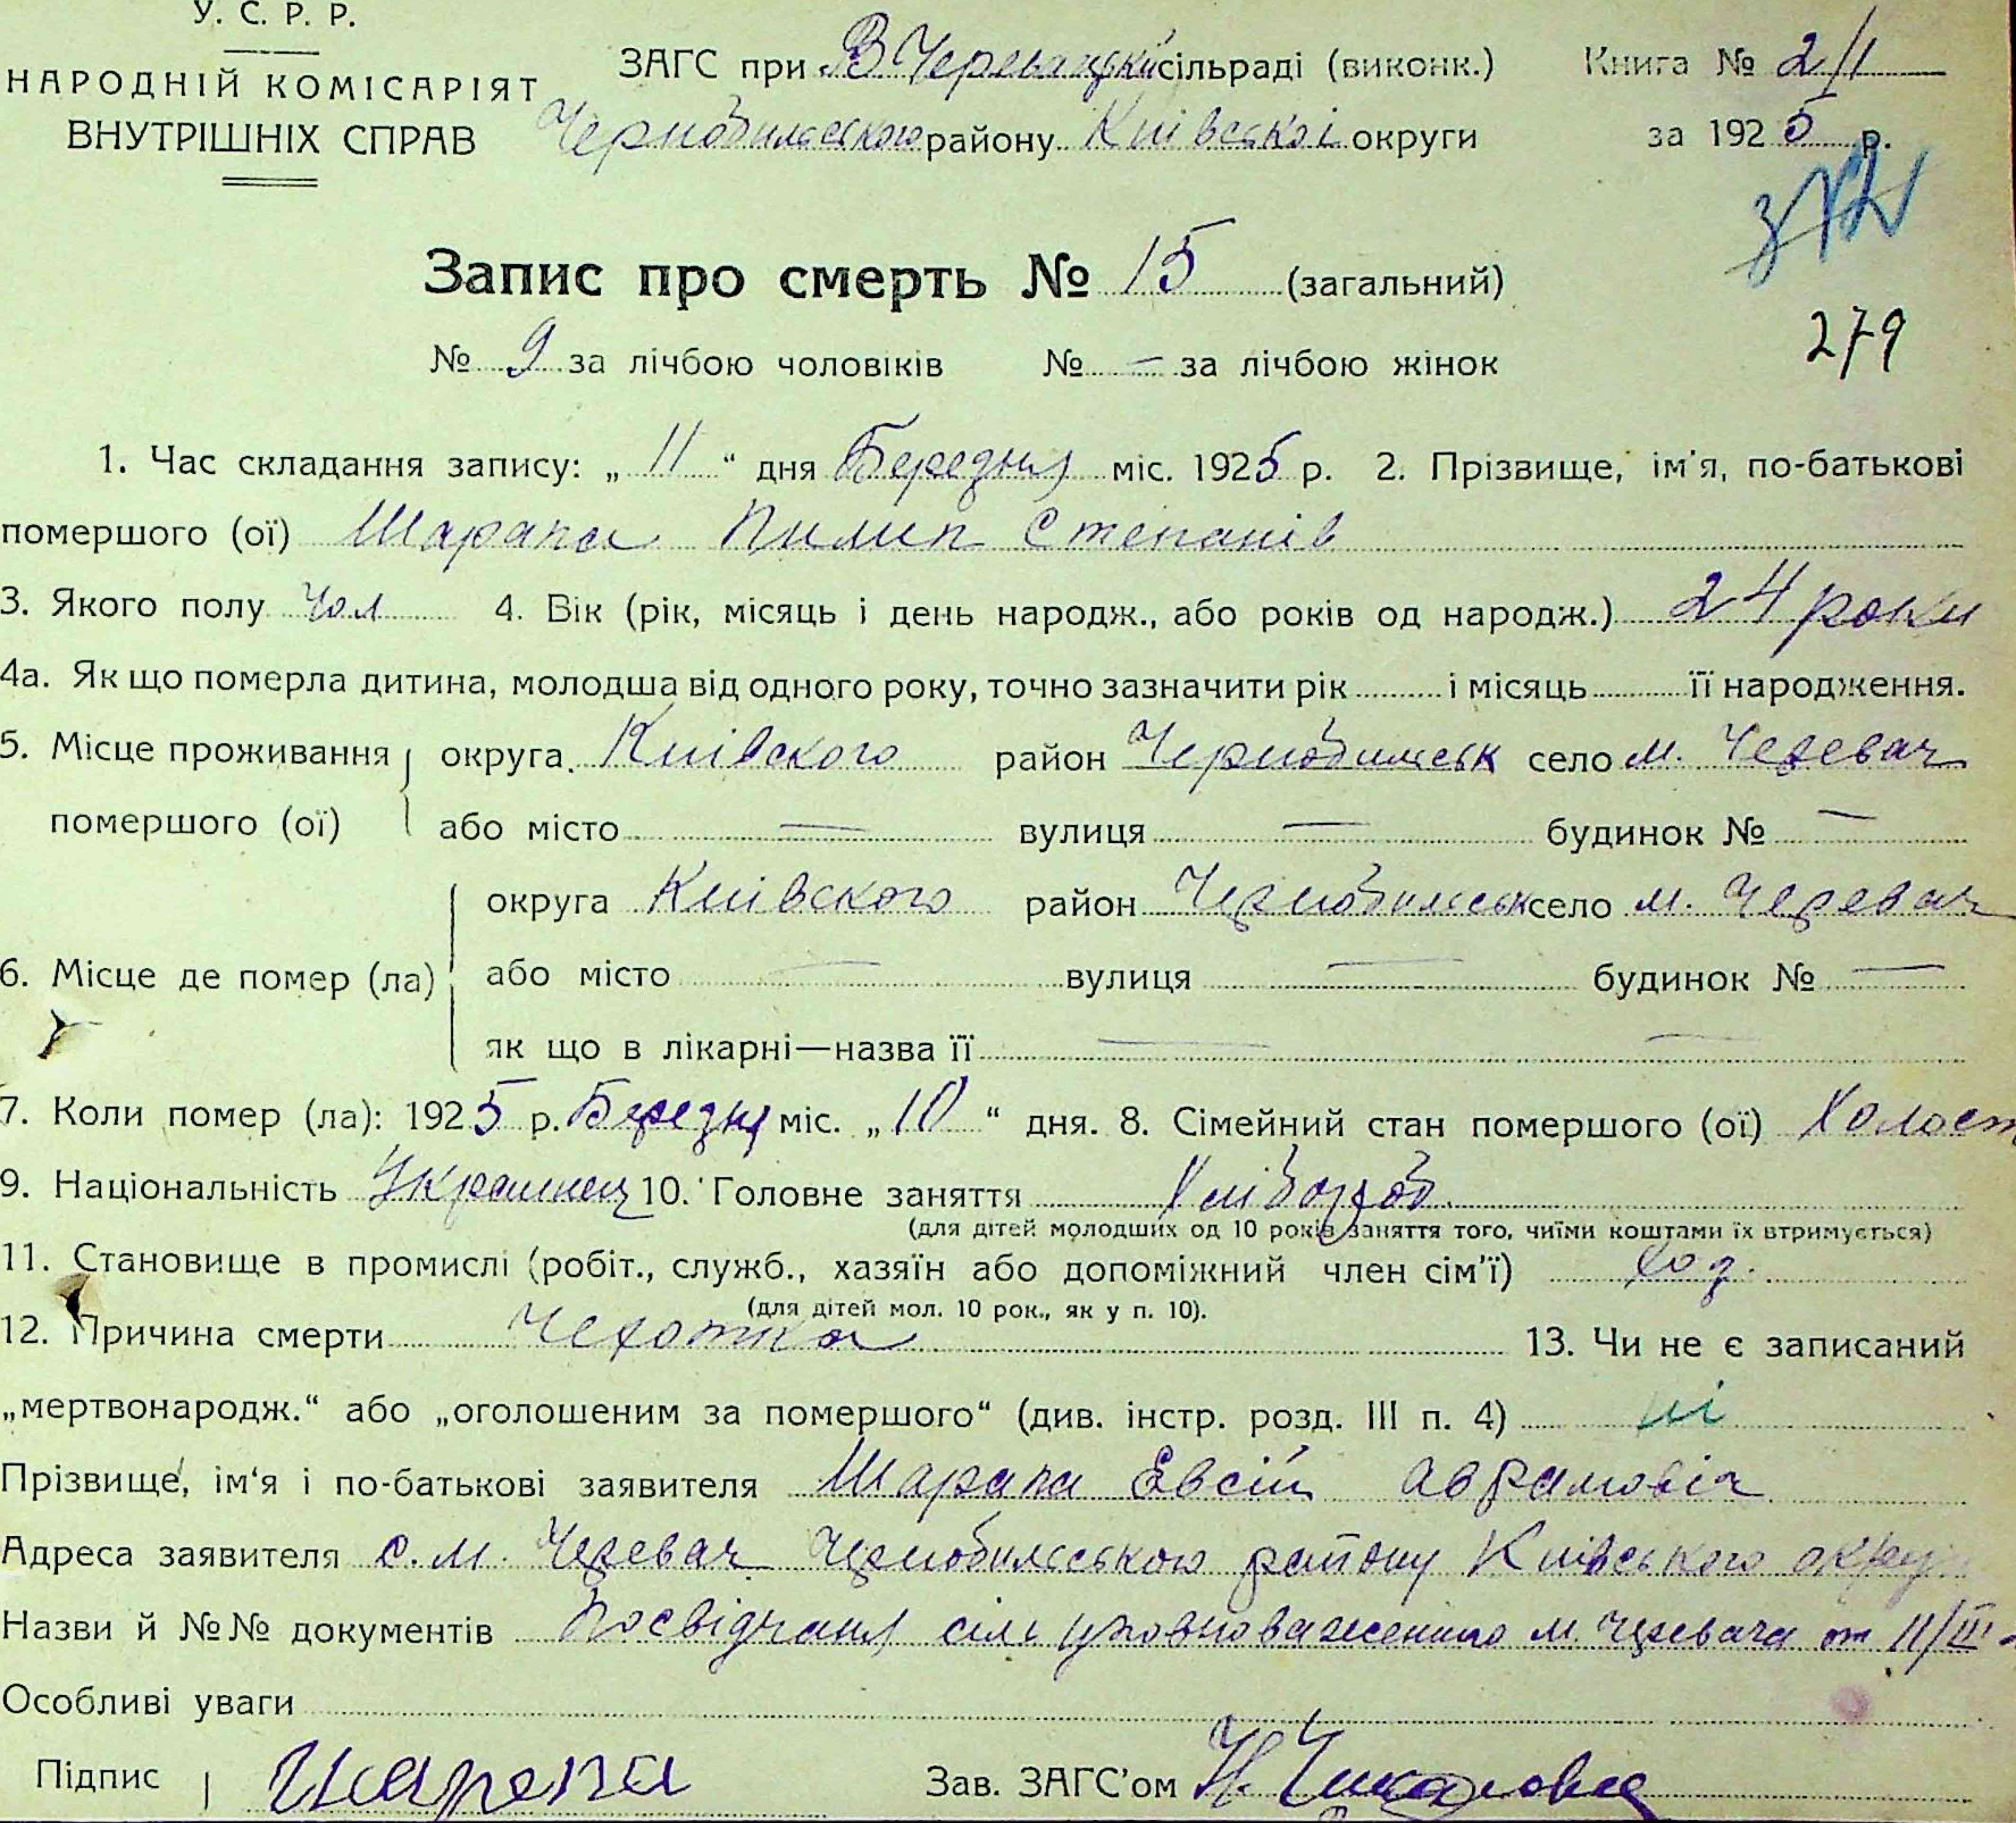 У. С. Р. Р.
НАРОДНІЙ КОМІСАРІЯТ
ВНУТРІШНІХ СПРАВ
ЗАГС при В Черевацькій сільраді (виконк.)
Чернобильского району Киівськоі округи
Книга № 2/1
за 1925 р.
Запис про смерть № 15 (загальний)
279
№ 9 за лічбою чоловіків № — за лічбою жінок
1. Час складання запису: „ 11 “ дня Березня міс. 1925 р. 2. Прізвище, ім'я, по-батькові
помершого (ої) Шарапа Пилип Степанів
3. Якого полу Чол 4. Вік (рік, місяць і день народж., або років од народж.) 24 роки
4а. Як що померла дитина, молодша від одного року, точно зазначити рік і місяць її народження.
5. Місце проживання помершого (ої) округа Киівского район Чернобильськ село м. Черевач
або місто — вулиця — будинок № —
6. Місце де помер (ла) округа Киівского район Чернобильськ село м. Черевач
або місто — вулиця — будинок № —
як що в лікарні—назва її — —
7. Коли помер (ла): 1925 р. Березня міс. „ 10 “ дня. 8. Сімейний стан помершого (ої) Холост
9. Національність Украинец 10. Головне заняття Хлібороб
(для дітей молодших од 10 років заняття того, чиїми коштами їх втримується)
11. Становище в промислі (робіт., служб., хазяїн або допоміжний член сім'ї)
(для дітей мол. 10 рок., як у п. 10).
12. Причина смерти Чехотка 13. Чи не є записаний
„мертвонародж.“ або „оголошеним за помершого“ (див. інстр. розд. III п. 4) ні
Прізвище, ім'я і по-батькові заявителя Шарапа Евсій Аврамовіч
Адреса заявителя с. м. Черевач Чернобильського району Киівського округ
Назви й №№ документів Посвідчання сіль уповноваженого м. Черевача от 11/III
Особливі уваги
Підпис Шарапа Зав. ЗАГС'ом